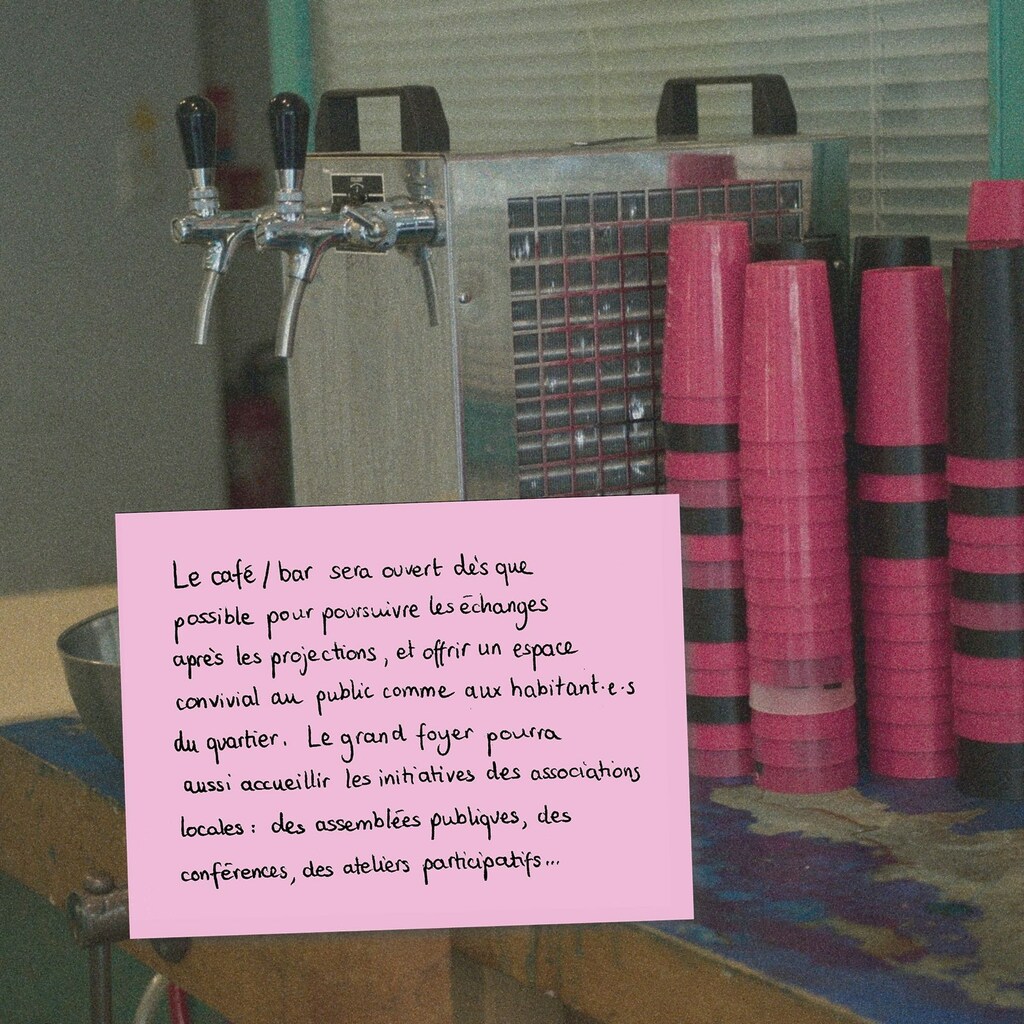 Le café/bar sera ouvert dès que
possible pour poursuivre les échanges
après les projections, et offrir un espace
convivial au public comme aux habitant·e·s
du quartier. Le grand foyer pourra
aussi accueillir les initiatives des associations
locales : des assemblées publiques, des
conférences, des ateliers participatifs...